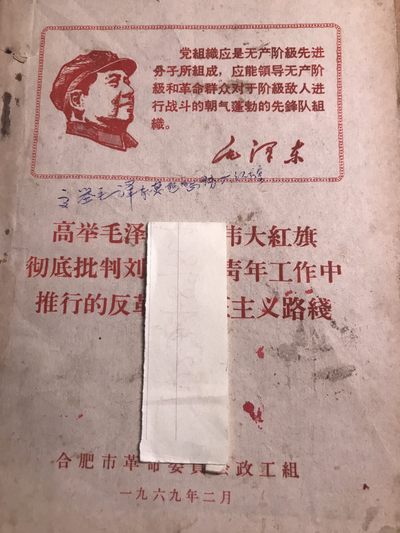 党组織应是无产阶級先进
分子所组成，应能領导无产阶
級和革命群众对于阶級敌人进
行战斗的朝气蓬勃的先鋒队組
織。
毛泽东
举毛泽东
高举毛泽 伟大紅旗
彻底批判刘 青年工作中
推行的反革 主义路綫
合肥市革命委 政工組
一九六九年二月